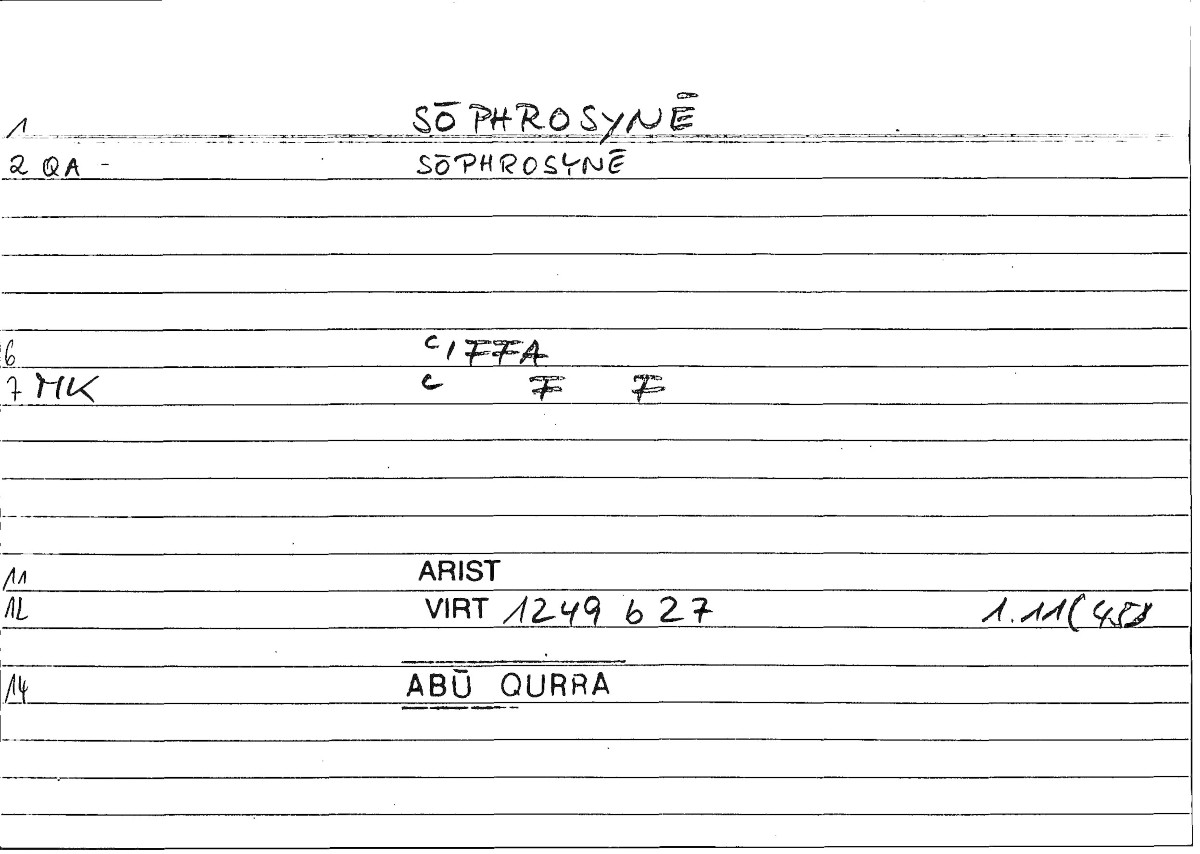 1 SŌPHROSYNĒ
2 QA - SŌPHROSYNĒ
6 ᶜIFFA
7 MK ᶜ F F
11 ARIST
12 VIRT 1249 b 27 1.11(
14 ABŪ QURRA